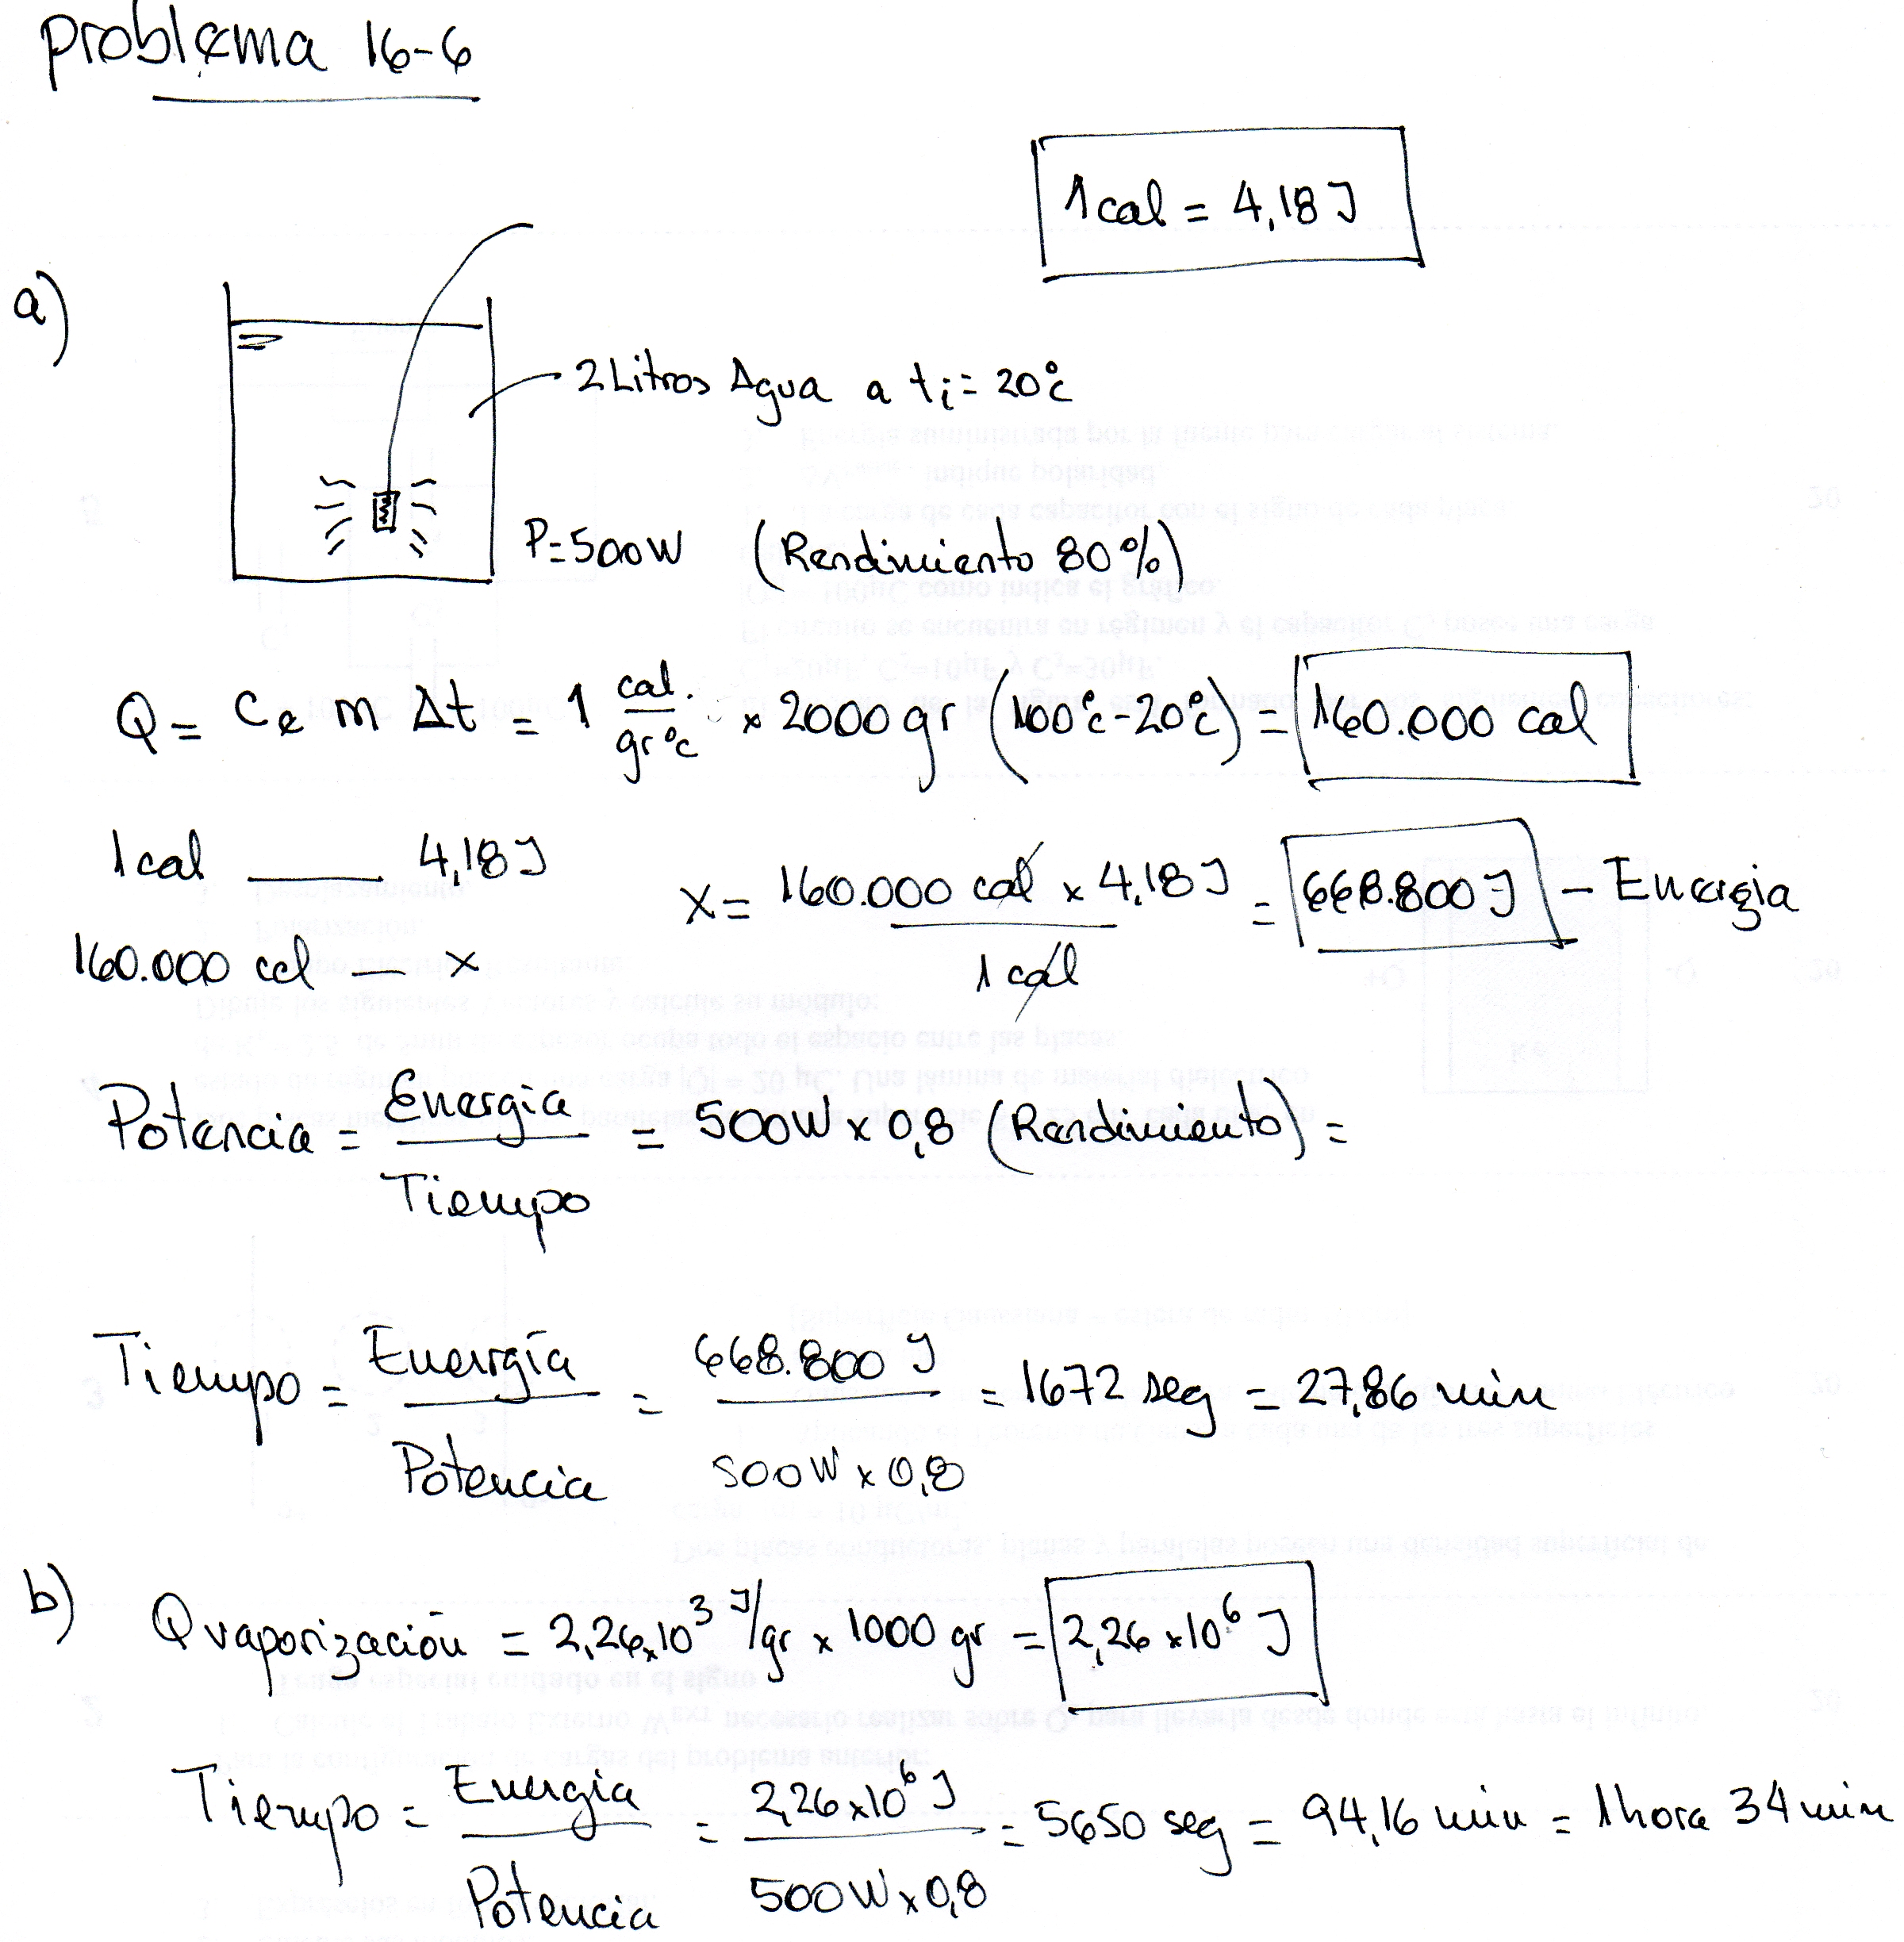 Problema 16-6
1 cal = 4,18 J
a)
2 Litros Agua a ti = 20°c
P=500W (Rendimiento 80%)
Q = Ce m Δt = 1 cal/gr°c × 2000 gr (100°c-20°c) = 160.000 cal
1 cal — 4,18 J
160.000 cal — x
x = 160.000 cal × 4,18 J / 1 cal = 668.800 J — Energia
Potencia = Energia / Tiempo = 500W × 0,8 (Rendimiento) =
Tiempo = Energía / Potencia = 668.800 J / 500W × 0,8 = 1672 seg = 27,86 min
b) Q vaporización = 2,26×10³ J/gr × 1000 gr = 2,26 ×10⁶ J
Tiempo = Energia / Potencia = 2,26×10⁶ J / 500W×0,8 = 5650 seg = 94,16 min = 1 hora 34 min